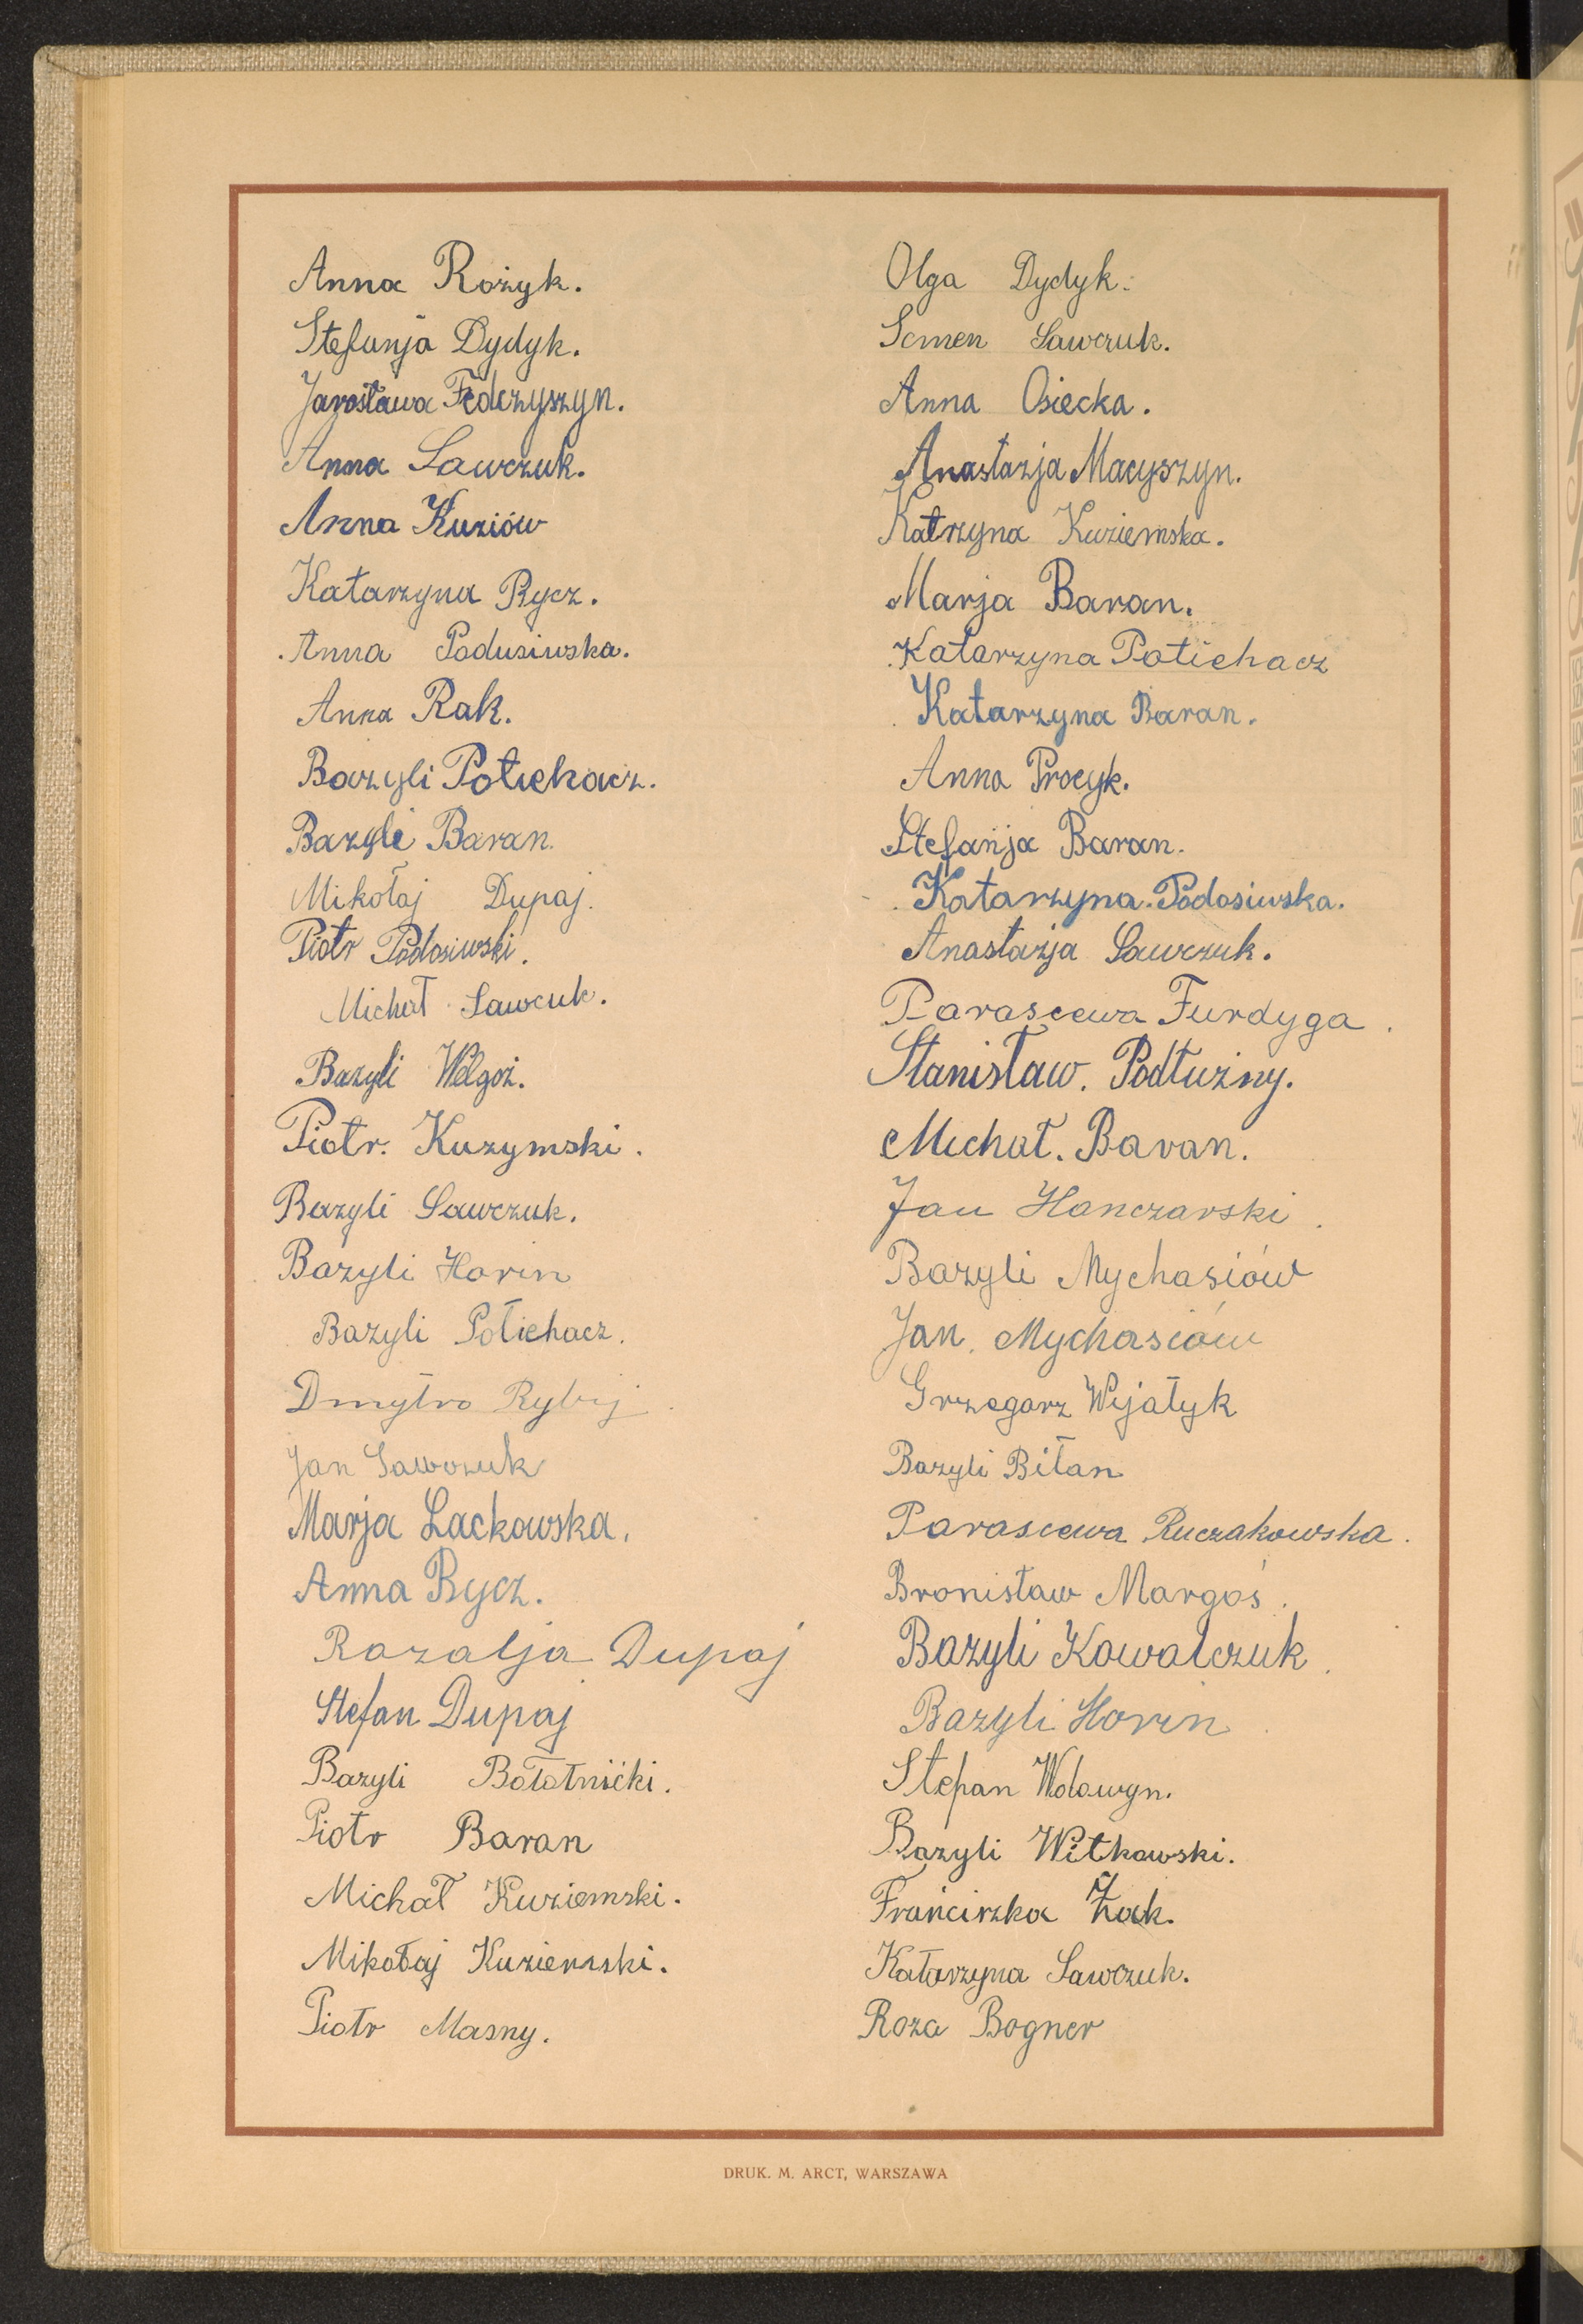 Anna Rożyk.
Stefanja Dydyk.
Jarosława Fedczyszyn.
Anna Sawczuk.
Anna Kuziów
Katarzyna Rycz.
Anna Podusiwska.
Anna Rak.
Bazyli Potichacz.
Bazyli Baran.
Mikołaj Dupaj.
Piotr Podosiwski.
Michał Sawcuk.
Bazyli Welgoż.
Piotr. Kuzymski.
Bazyli Sawczuk.
Bazyli Horin
Bazyli Potichacz.
Dmytro Rybij.
Jan Sawczuk
Marja Lackowska.
Anna Rycz.
Rozalja Dupaj
Stefan Dupaj
Bazyli Bołotnicki.
Piotr Baran
Michał Kuziemski.
Mikołaj Kuziemski.
Piotr Masny.
Olga Dydyk.
Semen Sawczuk.
Anna Osiecka.
Anastazja Macyszyn.
Katrzyna Kuziemska.
Marja Baran.
Katarzyna Potichacz
Katarzyna Baran.
Anna Procyk.
Stefanja Baran.
Katarzyna Podosiwska.
Anastazja Sawczuk.
Parascewa Furdyga.
Stanisław. Podłużny.
Michał. Baran.
Jan Hanczarski.
Bazyli Mychasiów
Jan. Mychasiów
Grzegorz Wijatyk
Bazyli Biłan
Parascewa Ruczakowska.
Bronisław Margoś.
Bazyli Kowalczuk.
Bazyli Horin.
Stepan Wolowyn.
Bazyli Witkowski.
Franciszka Żak.
Katarzyna Sawczuk.
Roza Bogner
DRUK. M. ARCT, WARSZAWA